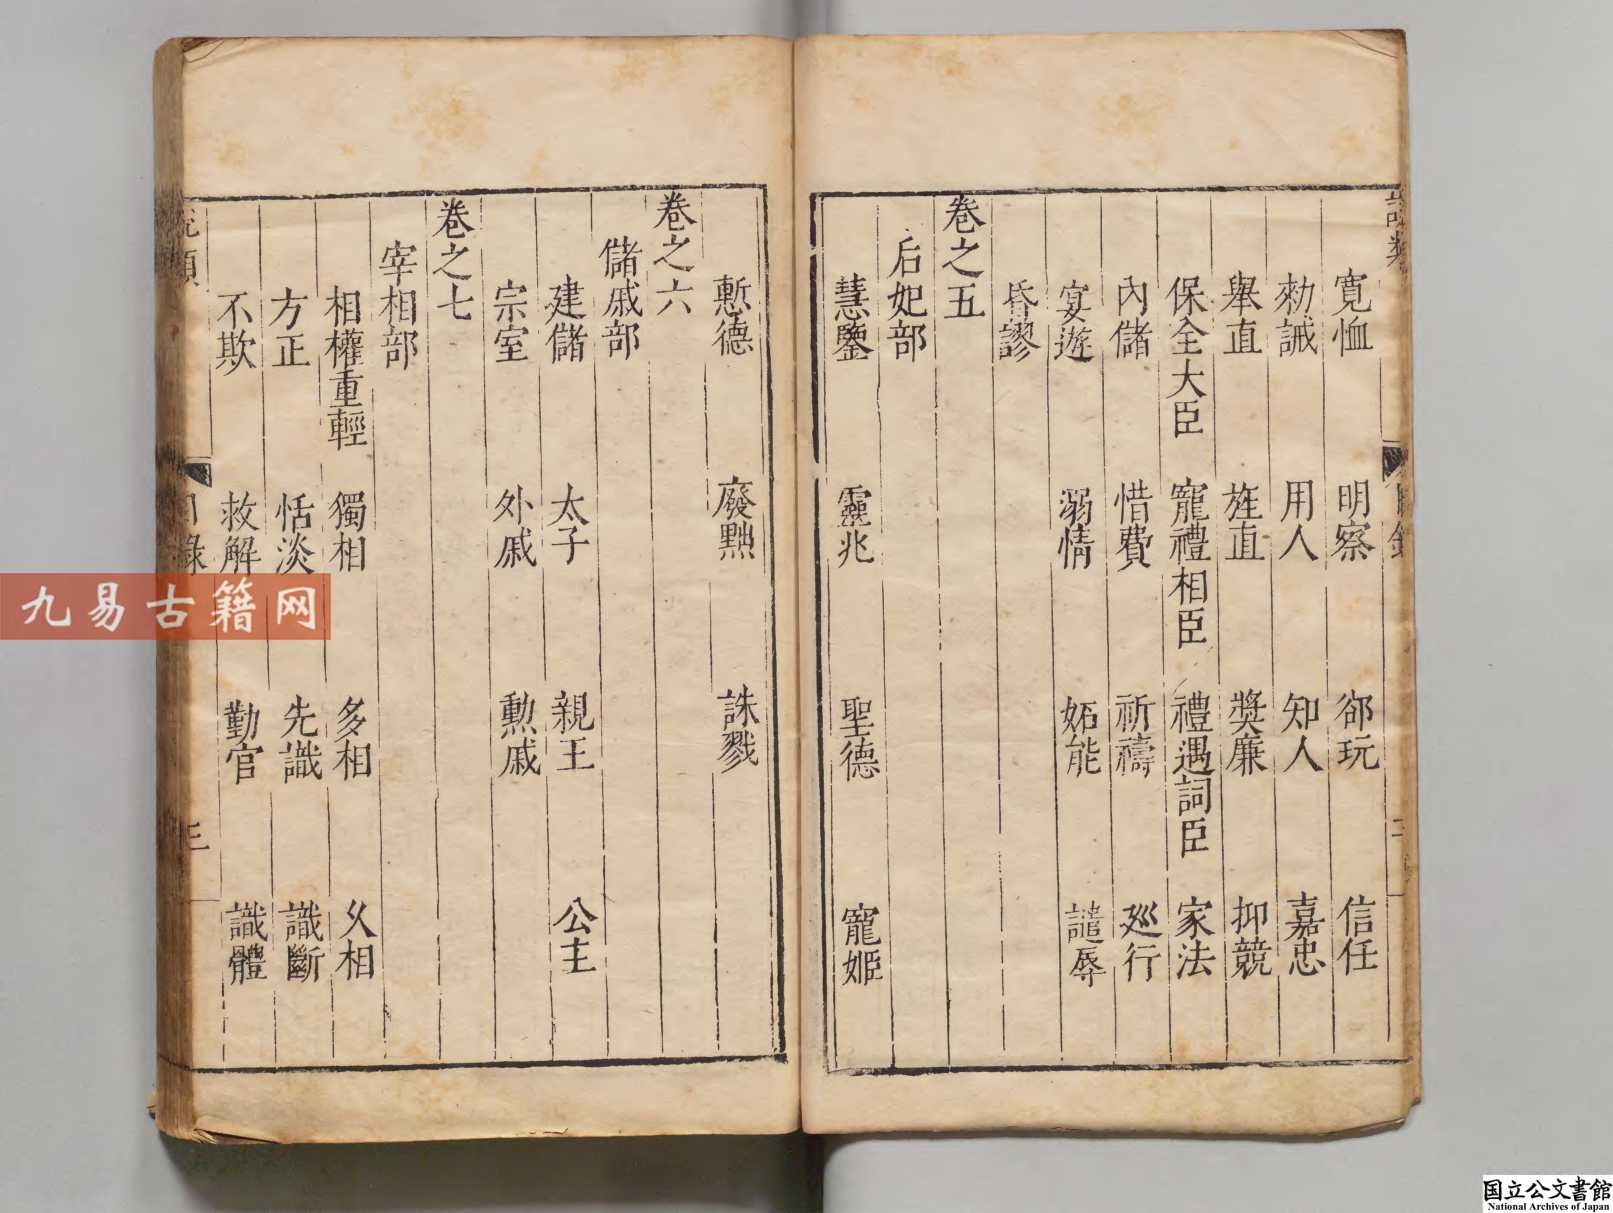 寛恤 明察 郤玩 信任
勑誡 用人 知人 嘉忠
舉直 旌直 獎廉 抑競
保全大臣 寵禮相臣 禮遇詞臣 家法
內儲 惜費 祈禱 廵行
宴遊 溺情 妬能 譴辱
昏謬
卷之五
后妃部
慧鑒 靈兆 聖德 寵姬
慙德 廢黜 誅戮
卷之六
儲戚部
建儲 太子 親王 公主
宗室 外戚 勲戚
卷之七
宰相部
相權重輕 獨相 多相 乆相
方正 恬淡 先識 識斷
不欺 救解 勤官 識體
目錄
三
九易古籍网
国立公文書館
National Archives of Japan